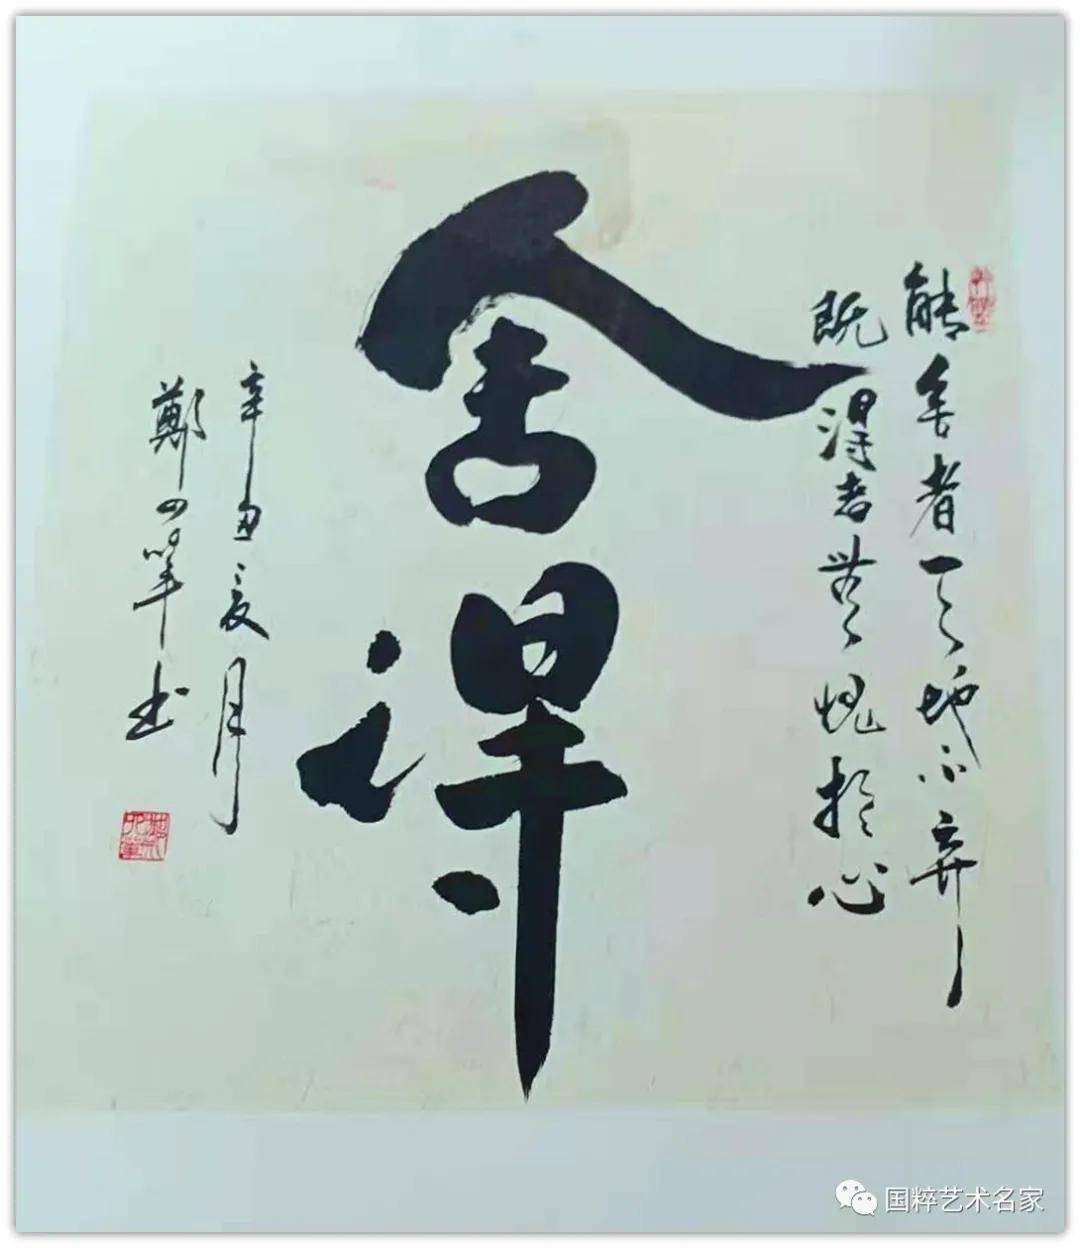 能舍者天地不弃
既得者無愧於心
舍得
辛丑夏月
鄭四笔书
国粹艺术名家